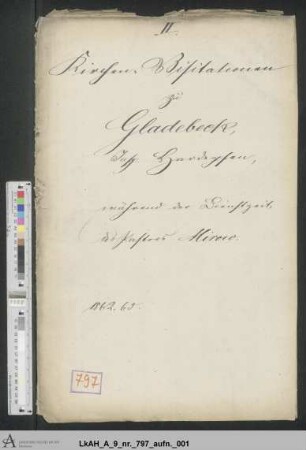 II.
Kirchen-Visitationen
zu
Gladebeck,
Insp. Hardegsen,
während der Dienstzeit
des Pastors
1862. 65.
797
LkAH_A_9_nr._797_aufn._001